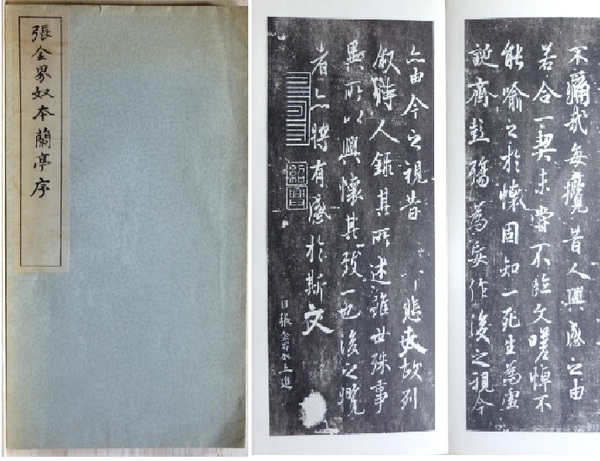 張金界奴本蘭亭序
不痛哉每攬昔人興感之由
若合一契未嘗不臨文嗟悼不
能喻之於懷固知一死生為虛
誕齊彭殤為妄作後之視今
亦由今之視昔 悲夫故列
叙時人錄其所述雖世殊事
異所以興懷其致一也後之攬
者亦將有感於斯文
臣張金界奴上進